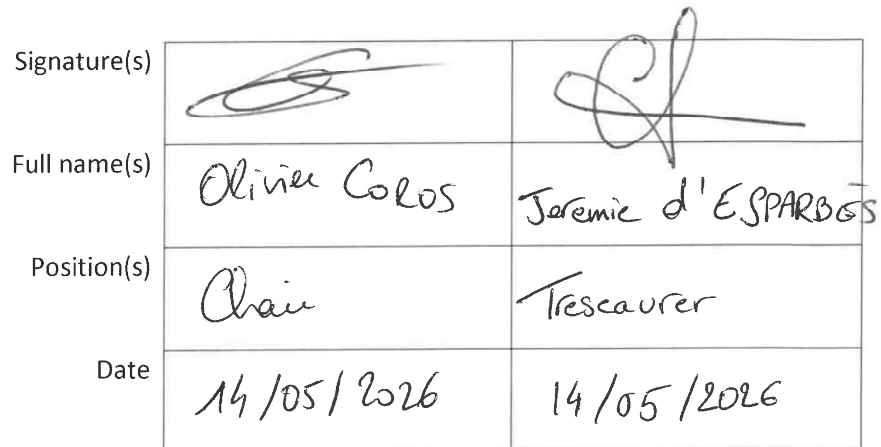 Signature(s)
Full name(s) Olivier COROS Jeremie d'ESPARBÈS
Position(s) Chair Trescaurer
Date 14/05/2026 14/05/2026